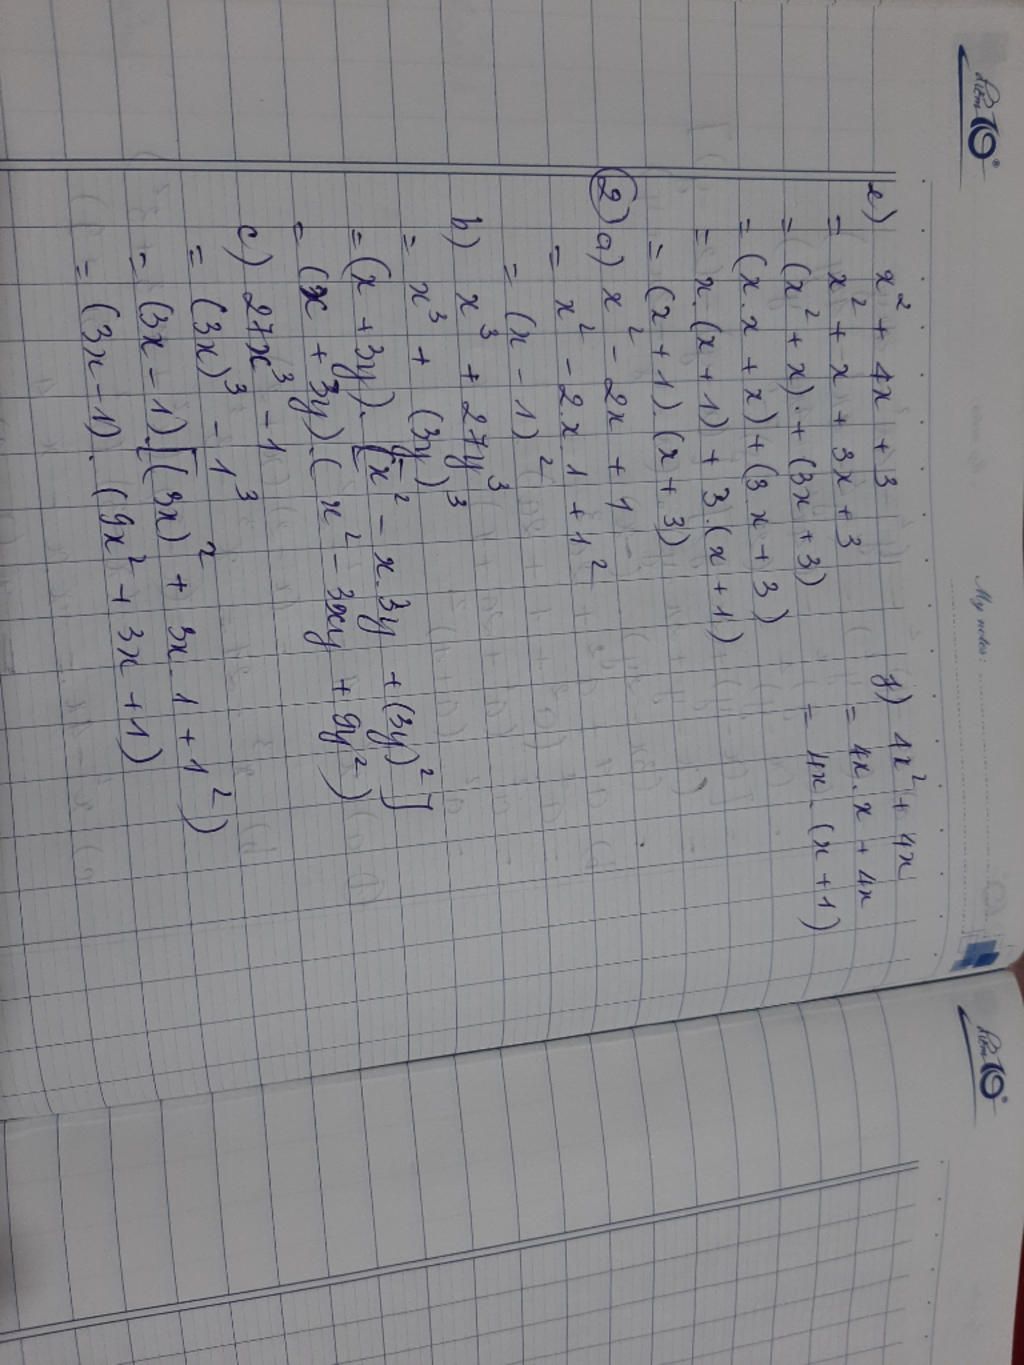 Điểm 10
My notes:
e) x² + 4x + 3
= x² + x + 3x + 3
= (x² + x) + (3x + 3)
= (x.x + x) + (3x + 3)
= x.(x + 1) + 3.(x + 1)
= (x + 1).(x + 3)
f) 4x² + 4x
= 4x.x + 4x
= 4x.(x + 1)
2) a) x² - 2x + 1
= x² - 2.x.1 + 1²
= (x - 1)²
b) x³ + 27y³
= x³ + (3y)³
= (x + 3y).[x² - x.3y + (3y)²]
= (x + 3y).(x² - 3xy + 9y²)
c) 27x³ - 1
= (3x)³ - 1³
= (3x - 1).[(3x)² + 3x.1 + 1²)
= (3x - 1).(9x² + 3x + 1)
Điểm 10